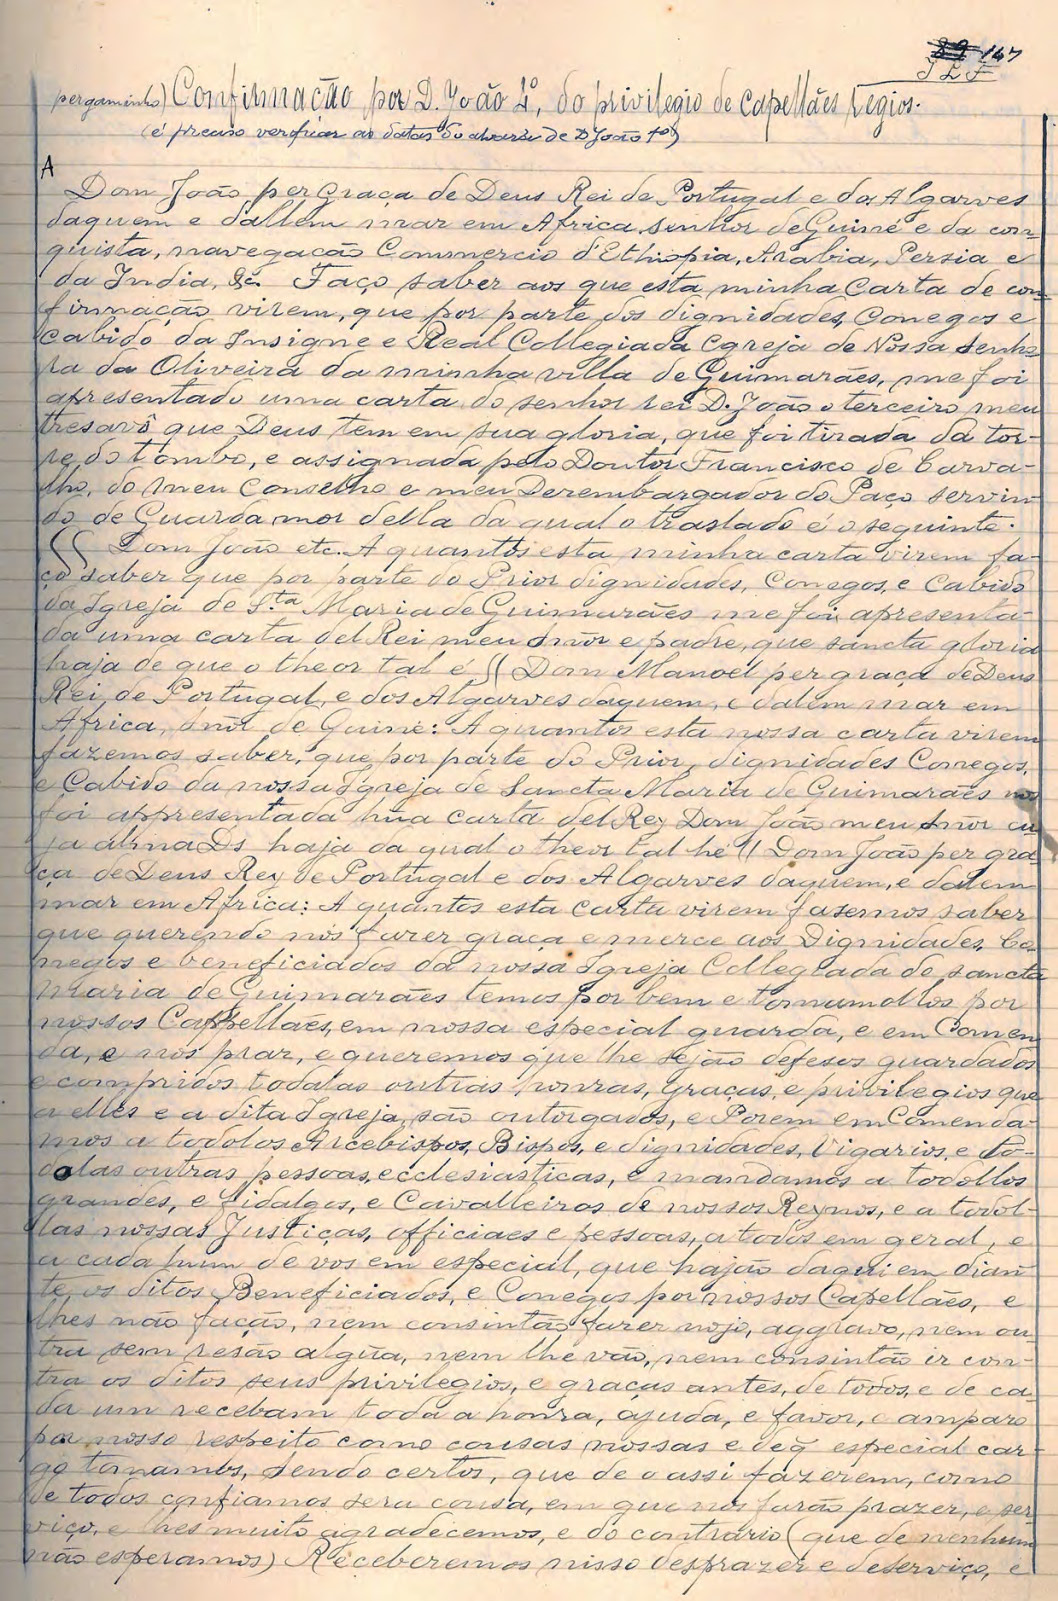 147
J L F
pergaminho) Confirmação por D. João 4º, do privilegio de capellães regios.
(é preciso verificar as datas do alvará de D João 1º)
A
Dom João per graça de Deus Rei de Portugal e dos Algarves
daquem e dallem mar em Africa senhor de Guiné e da con-
quista, navegação Commercio d'Ethiopia, Arabia, Persia e
da India, &c. Faço saber aos que esta minha Carta de con-
firmação virem, que por parte dos dignidades, Conegos e
Cabido da Insigne e Real Collegiada Egreja de Nossa Senho
ra da Oliveira da minha villa de Guimarães, me foi
apresentado uma carta do senhor rei D. João o terceiro meu
tresavô que Deus tem em sua gloria, que foi tirada da tor-
re do tombo, e assignada pelo Doutor Francisco de Carva-
lho, do meu Conselho e meu Desembargador do Paço servin
do de Guarda mor della da qual o traslado é o seguinte.
(( Dom João etc. A quantos esta minha carta virem fa-
ço saber que por parte do Prior dignidades, Conegos, e Cabido
da Igreja de Sta Maria de Guimarães me foi apresenta-
da uma carta del Rei meu Snor e padre, que sancta gloria
haja de que o theor tal é (( Dom Manoel per graça de Deus
Rei de Portugal, e dos Algarves daquem, e dalem mar em
Africa, Snor de Guine: A quantos esta nossa carta virem
fazemos saber, que por parte do Prior, dignidades Conegos,
e Cabido da nossa Igreja de Sancta Maria de Guimarães nos
foi appresentada hũa carta del Rey Dom João meu Snor cu
ja alma Ds haja da qual o theor tal he (( Dom João per gra
ça de Deus Rey de Portugal e dos Algarves daquem, e dalem
mar em Africa: A quantos esta carta virem fasemos saber
que querendo nós fazer graça e merce aos Dignidades, Co-
negos e beneficiados da nossa Igreja Collegiada de sancta
Maria de Guimarães temos por bem e tomamollos por
nossos Cappellães, em nossa especial guarda, e em Comen
da, e nos praz, e queremos que lhe sejão defesos guardados
e compridos todalas outras honras, graças, e privilegios que
a elles e a dita Igreja, são outorgados, e Porem em Comenda-
mos a todolos Arcebispos, Bispos, e dignidades, Vigarios, e to-
dalas outras pessoas, ecclesiasticas, e mandamos a todollos
grandes, e fidalgos, e Cavalleiros de nossos Reynos, e a todol-
las nossas Justiças, officiaes e pessoas, a todos em geral, e
a cada hum de vos em especial, que hajão daqui em dian
te, os ditos Beneficiados, e Conegos por nossos Capellães, e
lhes não fação, nem consintão fazer nojo, aggravo, nem ou-
tra sem resão algũa, nem lhe vão, nem consintão ir con-
tra os ditos seus privilegios, e graças antes, de todos, e de ca-
da um recebam toda a honra, ajuda, e favor, e amparo
por nosso respeito como cousas nossas e de q̃ especial car-
go tomamos, sendo certos, que de o assi fazerem, como
de todos confiamos sera cousa, em que nos farão prazer, e ser
viço, e lhes muito agradecemos, e do contrario (que de nenhum
não esperamos) Receberemos nisso desprazer e deserviço, e